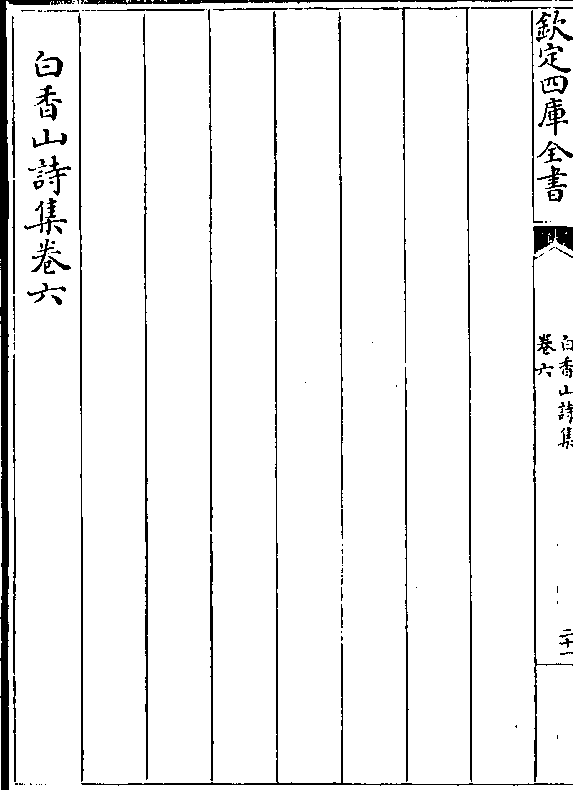 欽定四庫全書
白香山詩集
卷六
二十一
白香山詩集卷六